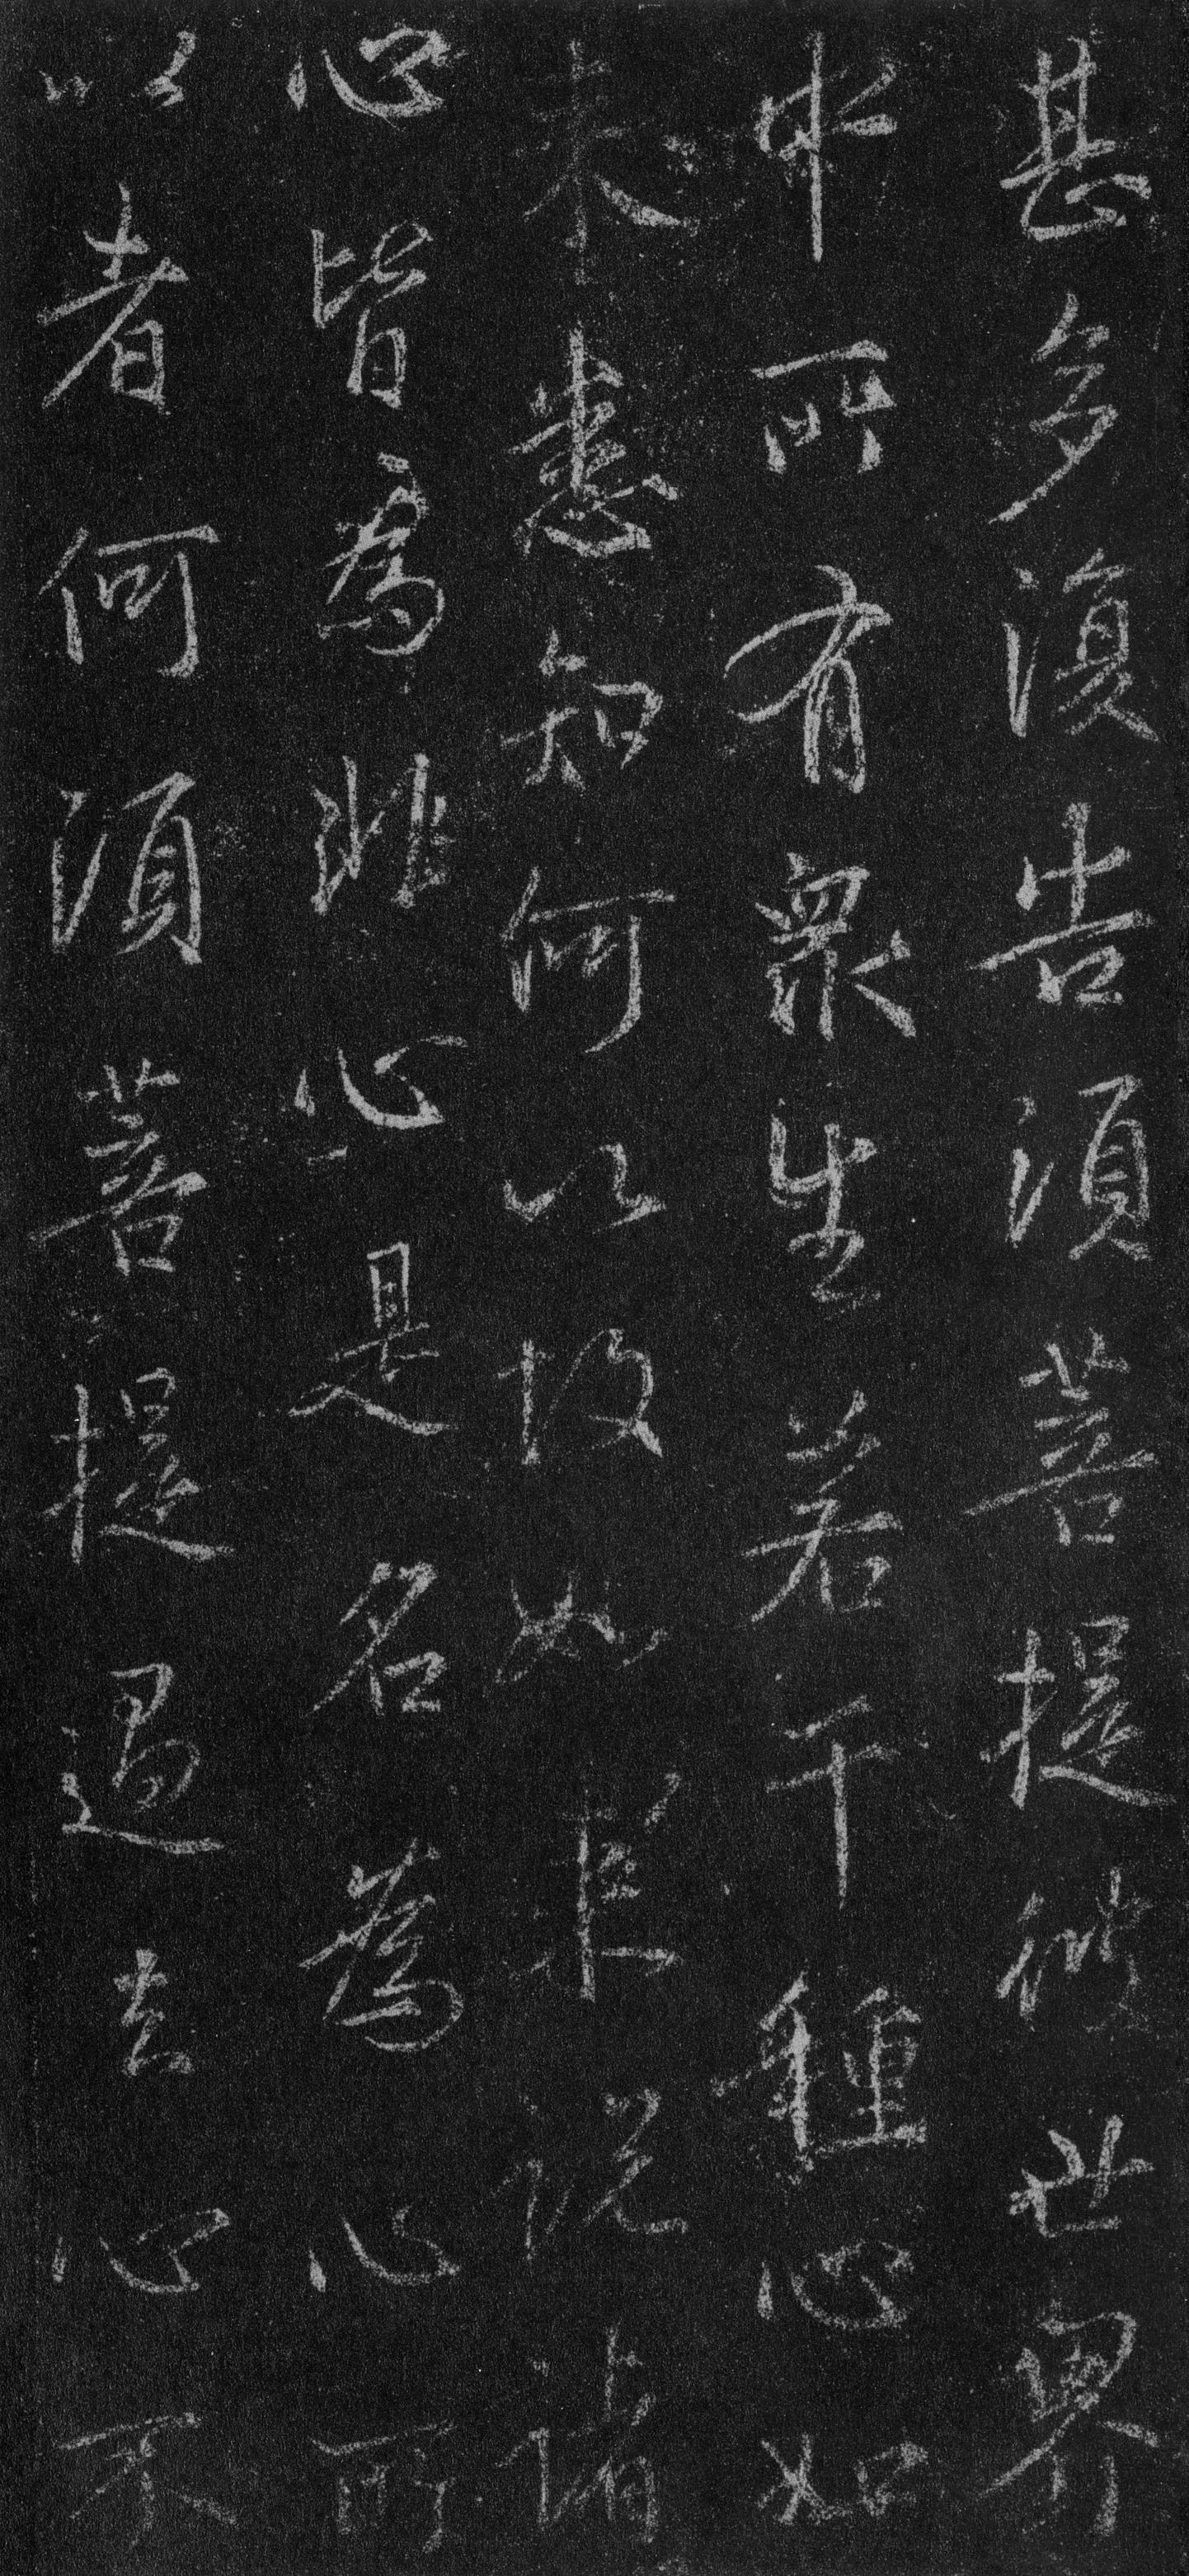 甚多復告須菩提彼世界
中所有衆生若干種心如
来悉知何以故如来説諸
心皆為非心是名為心所
以者何須菩提過去心不